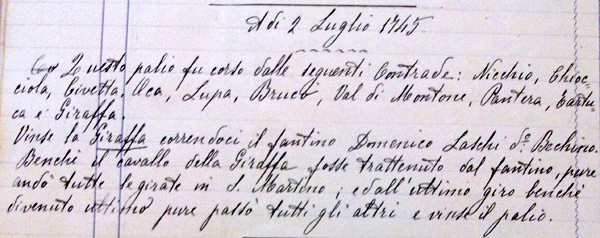 A di 2 Luglio 1745
Questo palio fu corso dalle seguenti Contrade: Nicchio, Chioc-
ciola, Civetta, Oca, Lupa, Bruco, Val di Montone, Pantera, Tartu-
ca e Giraffa.
Vinse la Giraffa correndoci il fantino Domenico Laschi do Bechino.
Benchè il cavallo della Giraffa fosse trattenuto dal fantino, pure
andò tutte le girate in S. Martino; ed all'ultimo giro benchè
divenuto ultimo pure passò tutti gli altri e vinse il palio.